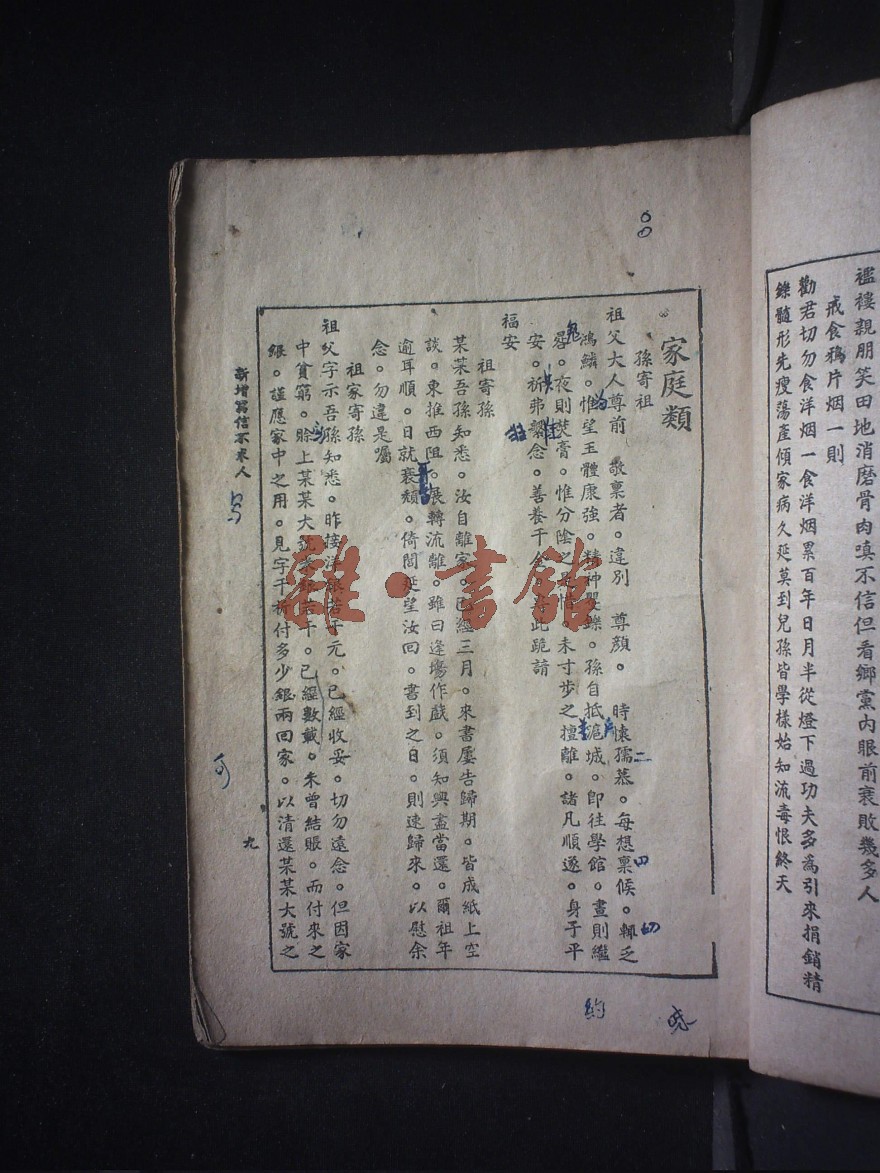 襤褸親朋笑田地消磨骨肉嗔不信但看鄉黨內眼前衰敗幾多人
戒食鴉片烟一則
勸君切勿食洋烟一食洋烟累百年日月半從燈下過功夫多為引來捐銷精
鑠髓形先瘦蕩產傾家病久延莫到兒孫皆學樣始知流毒恨終天
家庭類
孫寄祖
祖父大人尊前 敬稟者。違別 尊顏。 時懷孺慕。每想稟候。輒乏
鴻鱗。惟望玉體康強。精神矍鑠。孫自抵滬城。即往學館。晝則繼
晷。夜則焚膏。惟分陰之是惜。未寸步之擅離。諸凡順遂。身子平
安。祈弗繫念。善養千金。此跪請
福安
祖寄孫
某某吾孫知悉。汝自離家。已經三月。來書屢告歸期。皆成紙上空
談。東推西阻。展轉流離。雖曰逢塲作戲。須知興盡當還。爾祖年
逾耳順。日就衰頹。倚閭延望汝回。書到之日。則速歸來。以慰余
念。勿違是囑
祖家寄孫
祖父字示吾孫知悉。昨接洋銀若干元。已經收妥。切勿遠念。但因家
中貧窮。賒上某某大號若干。已經數載。未曾結賬。而付來之
銀。謹應家中之用。見字千祈付多少銀兩回家。以清還某某大號之
新增寫信不求人
九
二
四
切
約